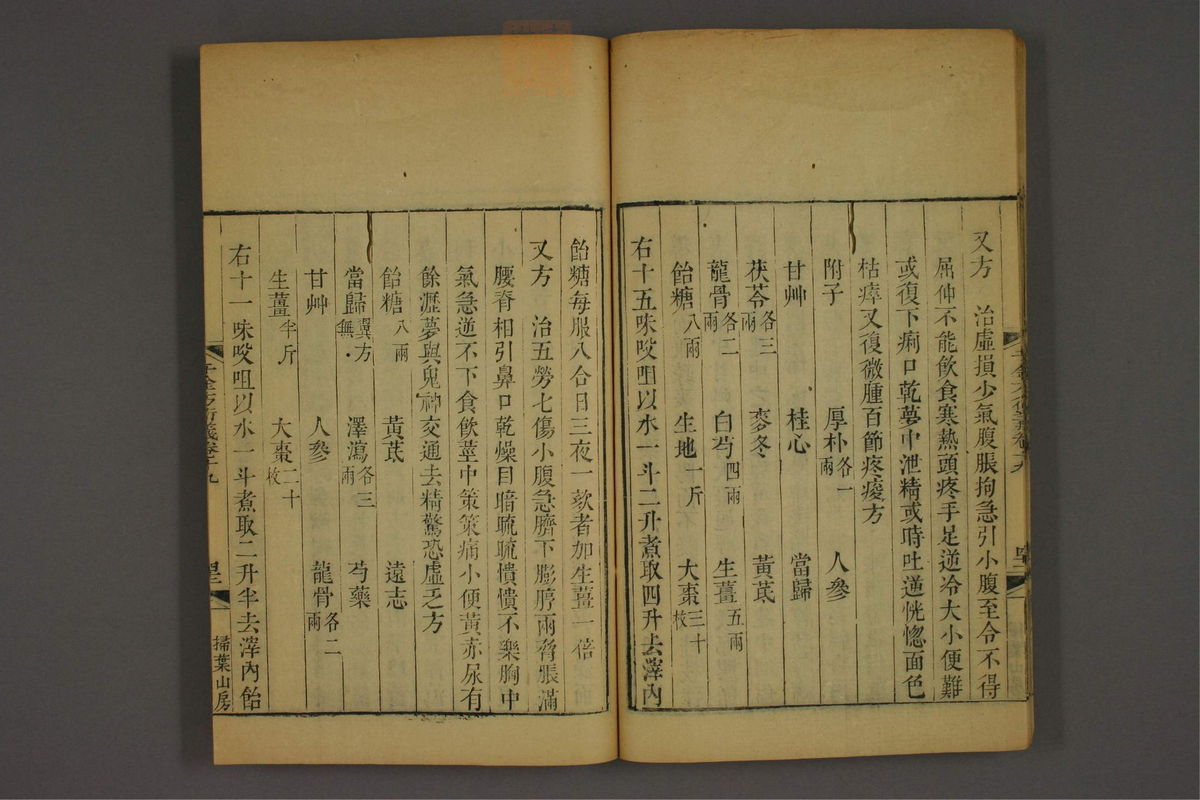 又方　治虛損少氣腹脹拘急引小腹至令不得
屈伸不能飲食寒熱頭疼手足逆冷大小便難
或復下痢口乾夢中泄精或時吐逆恍惚面色
枯瘁又復微腫百節疼痠方
附子　厚朴各一兩　人參
甘艸　桂心　當歸
茯苓各三兩　麥冬　黃芪
龍骨各二兩　白芍四兩　生薑五兩
飴糖八兩　生地一斤　大棗三十枚
右十五味㕮咀以水一斗二升煮取四升去滓內
飴糖每服八合日三夜一欬者加生薑一倍
又方　治五勞七傷小腹急臍下膨脝兩脅脹滿
腰脊相引鼻口乾燥目暗䀮䀮憒憒不樂胸中
氣急逆不下食飲莖中策策痛小便黃赤尿有
餘瀝夢與鬼神交通去精驚恐虛乏方
飴糖八兩　黃芪　遠志
當歸翼方無　澤瀉各三兩　芍藥
甘艸　人參　龍骨各二兩
生薑半斤　大棗二十枚
右十一味㕮咀以水一斗煮取二升半去滓內飴
千金方衍義卷十九
掃葉山房